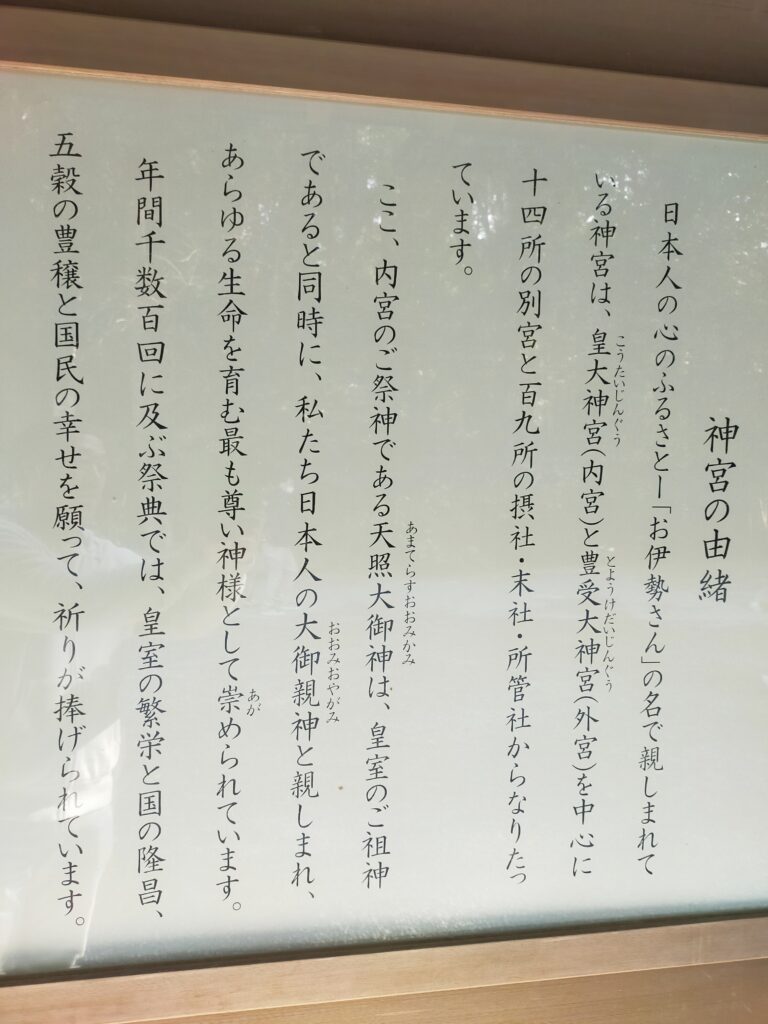 神宮の由緒
日本人の心のふるさとー「お伊勢さん」の名で親しまれて
いる神宮は、皇大神宮(内宮)と豊受大神宮(外宮)を中心に
こうたいじんぐう
とようけだいじんぐう
十四所の別宮と百九所の摂社・末社・所管社からなりたっ
ています。
ここ、内宮のご祭神である天照大御神は、皇室のご祖神
あまてらすおおみかみ
であると同時に、私たち日本人の大御親神と親しまれ、
おおみおやがみ
あらゆる生命を育む最も尊い神様として崇められています。
あが
年間千数百回に及ぶ祭典では、皇室の繁栄と国の隆昌、
五穀の豊穣と国民の幸せを願って、祈りが捧げられています。